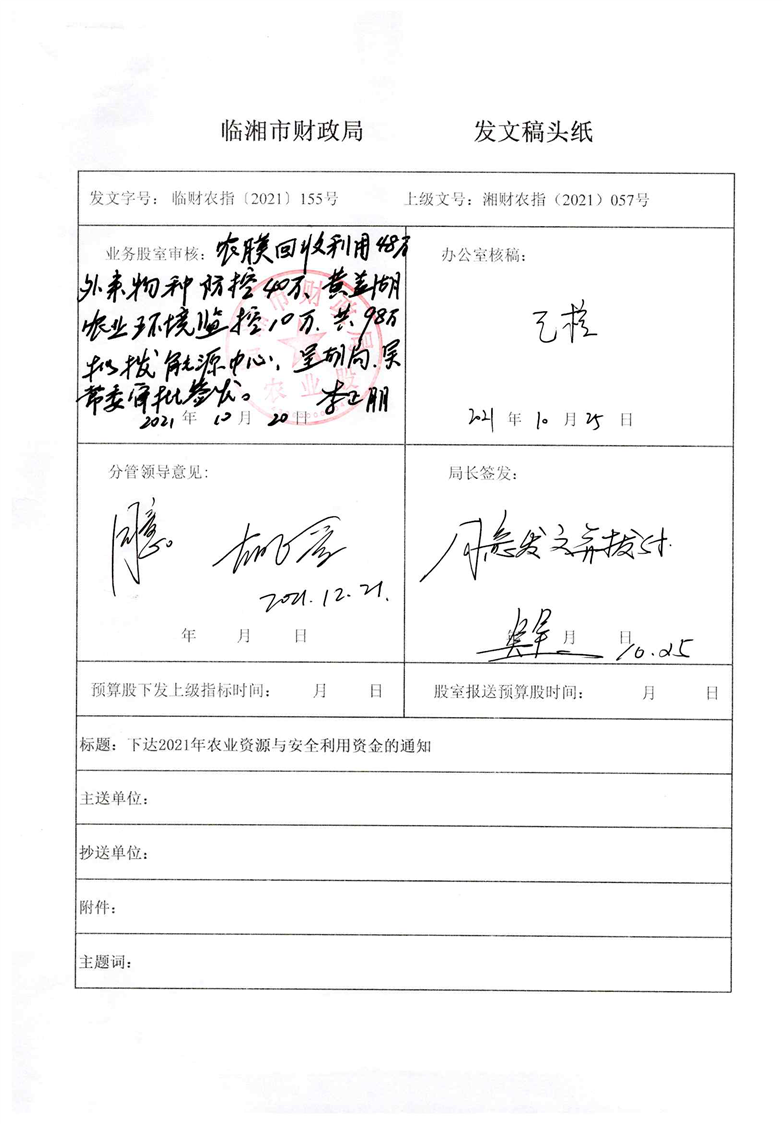 临湘市财政局 发文稿头纸
发文字号： 临财农指〔2021〕155号 上级文号：湘财农指（2021）057号
业务股室审核：农膜回收利用48万
外来物种防控40万、黄盖湖
农业环境监控10万.共98万
批拨能源中心，呈胡局.吴
常委审批签发。 李正朋
2021年10月20日
农业股
办公室核稿：
已核
2021年10月25日
分管领导意见：
同意。
2021.12.21.
年 月 日
局长签发：
同意发文并拨付.
年 月 日
10.25
预算股下发上级指标时间： 月 日 股室报送预算股时间： 月 日
标题：下达2021年农业资源与安全利用资金的通知
主送单位：
抄送单位：
附件：
主题词：